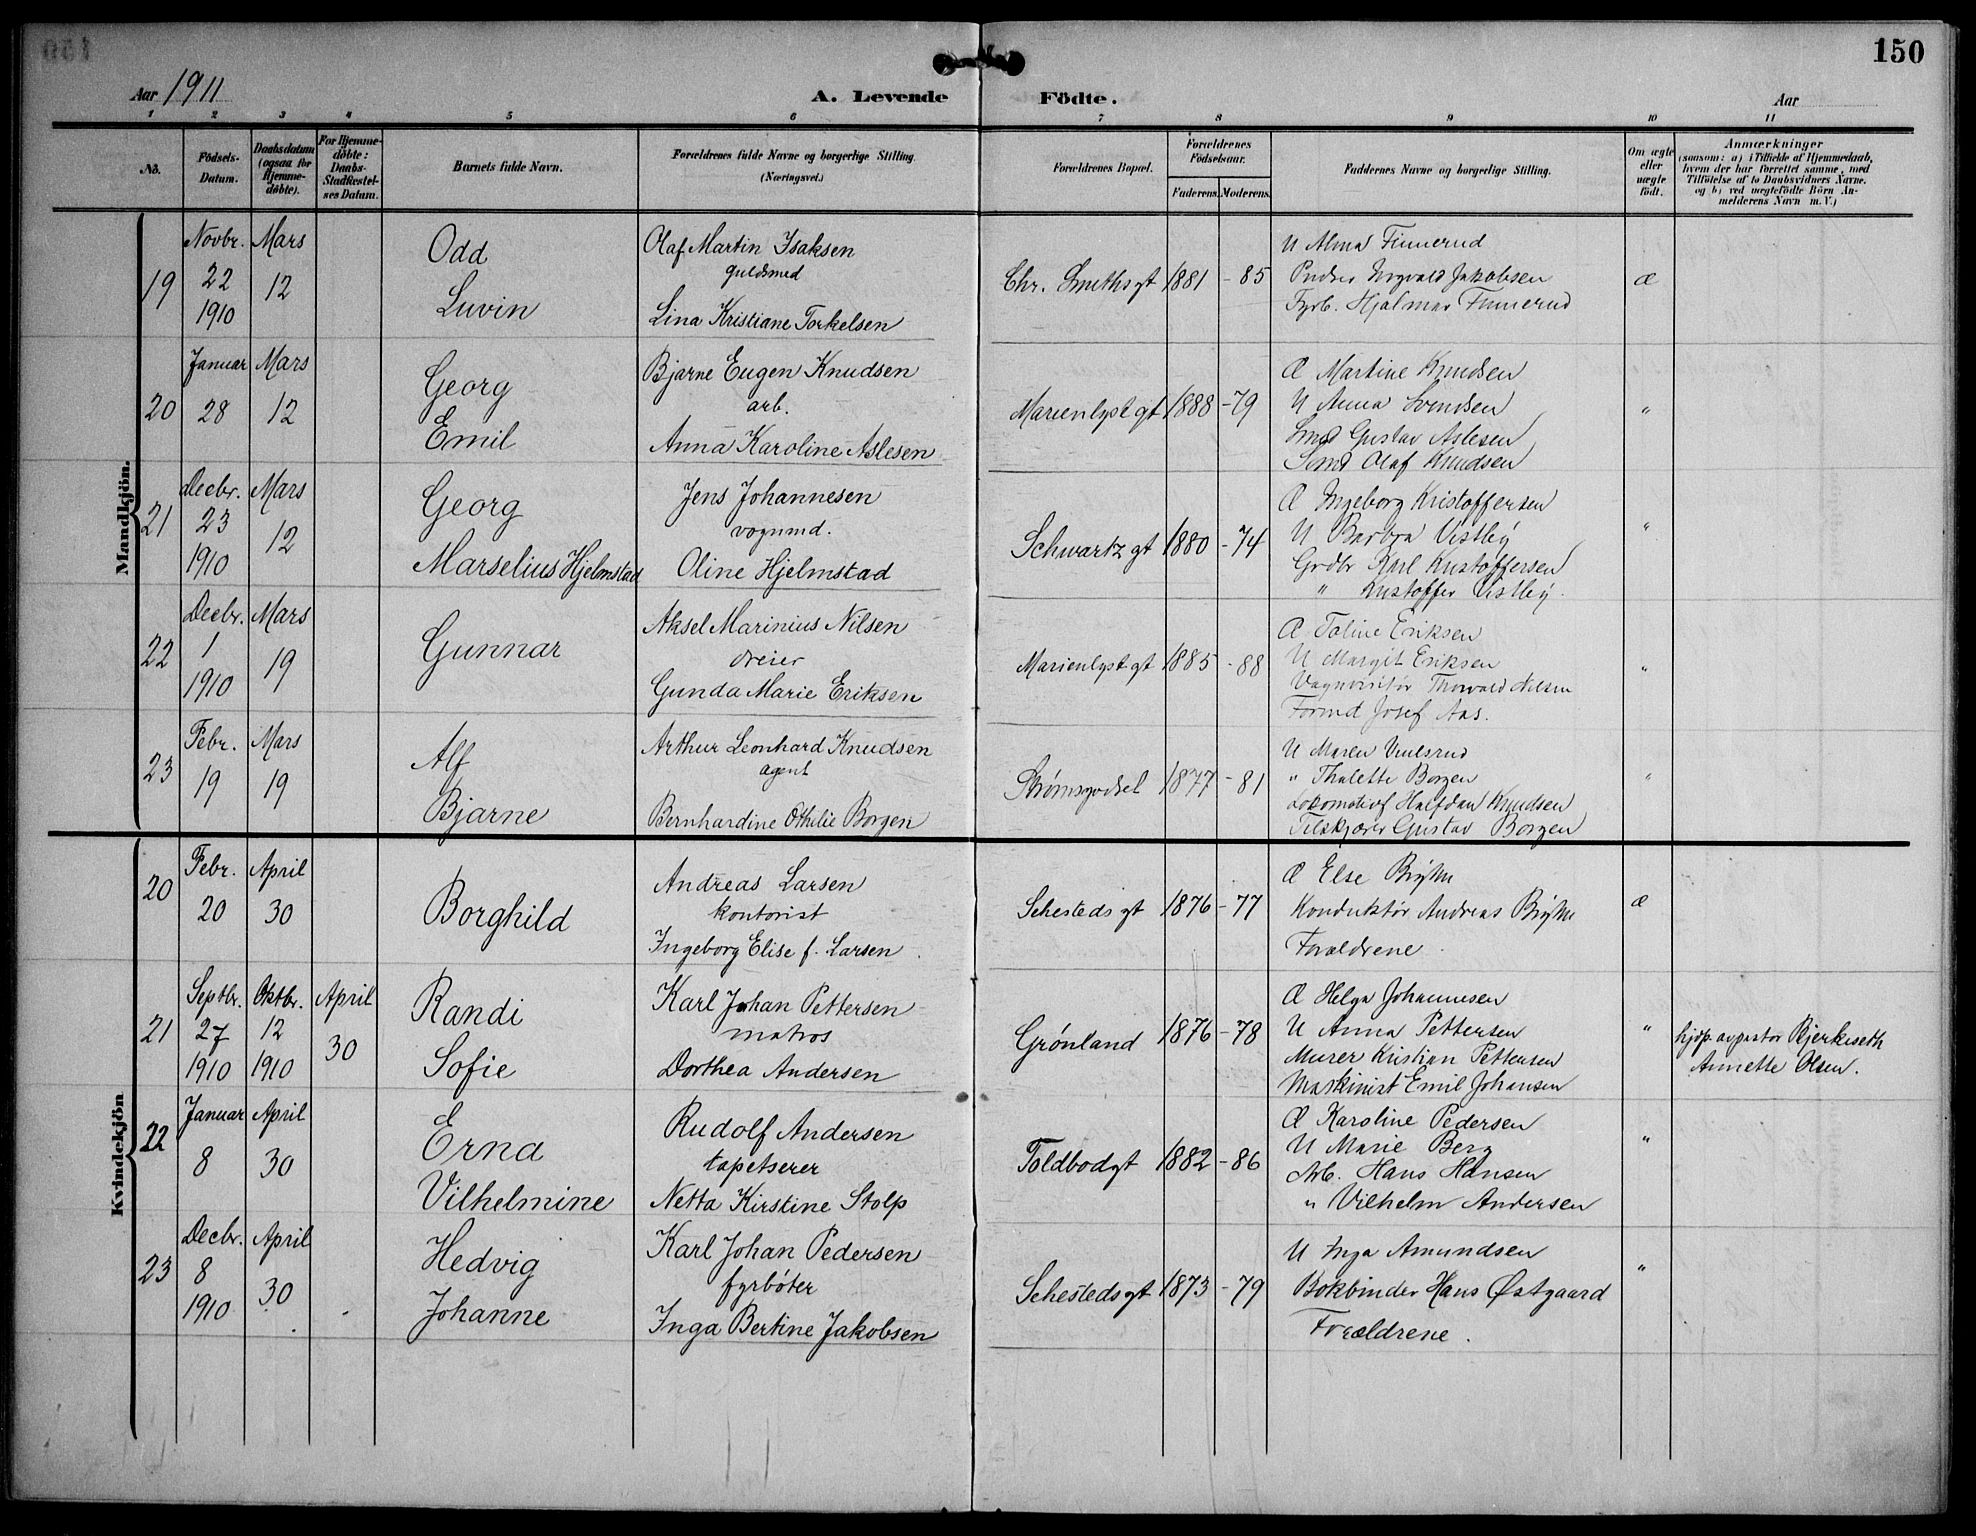 150
Aar 1911
A. Levende Födte.
Aar
1 2 3 4 5 6 7 8 9 10 11
No.
Födsels-Datum.
Daabsdatum (ogsaa for Hjemme-döbte).
For Hjemme-döbte: Daabs-Stadfæstel-ses Datum.
Barnets fulde Navn.
Forældrenes fulde Navne og borgerlige Stilling.
(Næringsvei.)
Forældrenes Bopæl.
Forældrenes Födselsaar.
Faderens. Moderens.
Faddernes Navne og borgerlige Stilling.
Om ægte eller uægte födt.
Anmærkninger
(saasom: a) i Tilfælde af Hjemmedaab,
hvem der har forrettet samme, med
Tilföielse af to Daabsvidners Navne.
og b) ved uægtefödte Börn An-
melderens Navn m. V.)
Mandkjön.
19
Novbr. 22 1910
Mars 12
Odd
Luvin
Olaf Martin Isaksen
guldsmed
Lina Kristiane Torkelsen
Chr. Smithsgt
1881 - 85
U Alma Finnerud
Pudser Ingvald Jakobsen
Fyrb. Hjalmar Finnerud
Æ
20
Januar 28
Mars 12
Georg
Emil
Bjarne Eugen Knudsen
arb.
Anna Karoline Aslesen
Marienlystgt
1888 - 79
Æ Martine Knudsen
U Anna Svendsen
Smed Gustav Aslesen
Olaf Knudsen
"
21
Decbr. 23 1910
Mars 12
Georg
Marselius Hjelmstad
Jens Johannesen
vognmd.
Oline Hjelmstad
Schwartzgt
1880 - 74
Æ Ingeborg Kristoffersen
U Barbra Vestby
Grdbr Karl Kristoffersen
" Kristoffer Vestby.
"
22
Decbr. 1 1910
Mars 19
Gunnar
Aksel Marinius Nilsen
dreier
Gunda Marie Eriksen
Marienlystgt
1885 - 88
Æ Toline Eriksen
U Margit Eriksen
Vognvisitør Thorvald Nilsen
Formd Josef Aas.
"
23
Febr. 19
Mars 19
Alf
Bjarne
Arthur Leonhard Knudsen
agent
Bernhardine Othilie Borgen
Strømsgodset
1877 - 81
U Maren
" Thalette Borgen
Lokomotivf Halfdan Knudsen
Tilskjærer Gustav Borgen
"
Kvindekjön
20
Febr. 20
April 30
Borghild
Andreas Larsen
kontorist
Ingeborg Elise f. Larsen
Sehestedsgt
1876 - 77
Æ Else
Konduktør Andreas
Forældrene
Æ
21
Septbr. 27 1910
Oktbr. 12 1910
April 30
Randi
Sofie
Karl Johan Pettersen
matros
Dorthea Andersen
Grønland
1876 - 78
Æ Helga Johannesen
U Anna Pettersen
Murer Kristian Pettersen
Maskinist Emil Johansen
"
hjdp. av pastor Bjerkeseth
Annette Olsen.
22
Januar 8
April 30
Erna
Vilhelmine
Rudolf Andersen
tapetserer
Netta Kirstine Stolp
Toldbodgt
1882 - 86
Æ Karoline Pedersen
U Marie Berg
Arb. Hans Hansen
" Vilhelm Andersen
"
23
Decbr. 8 1910
April 30
Hedvig
Johanne
Karl Johan Pedersen
fyrbøter
Inga Bertine Jakobsen
Sehestedsgt
1873 - 79
U Inga Amundsen
Bokbinder Hans Østgaard
Forældrene.
"